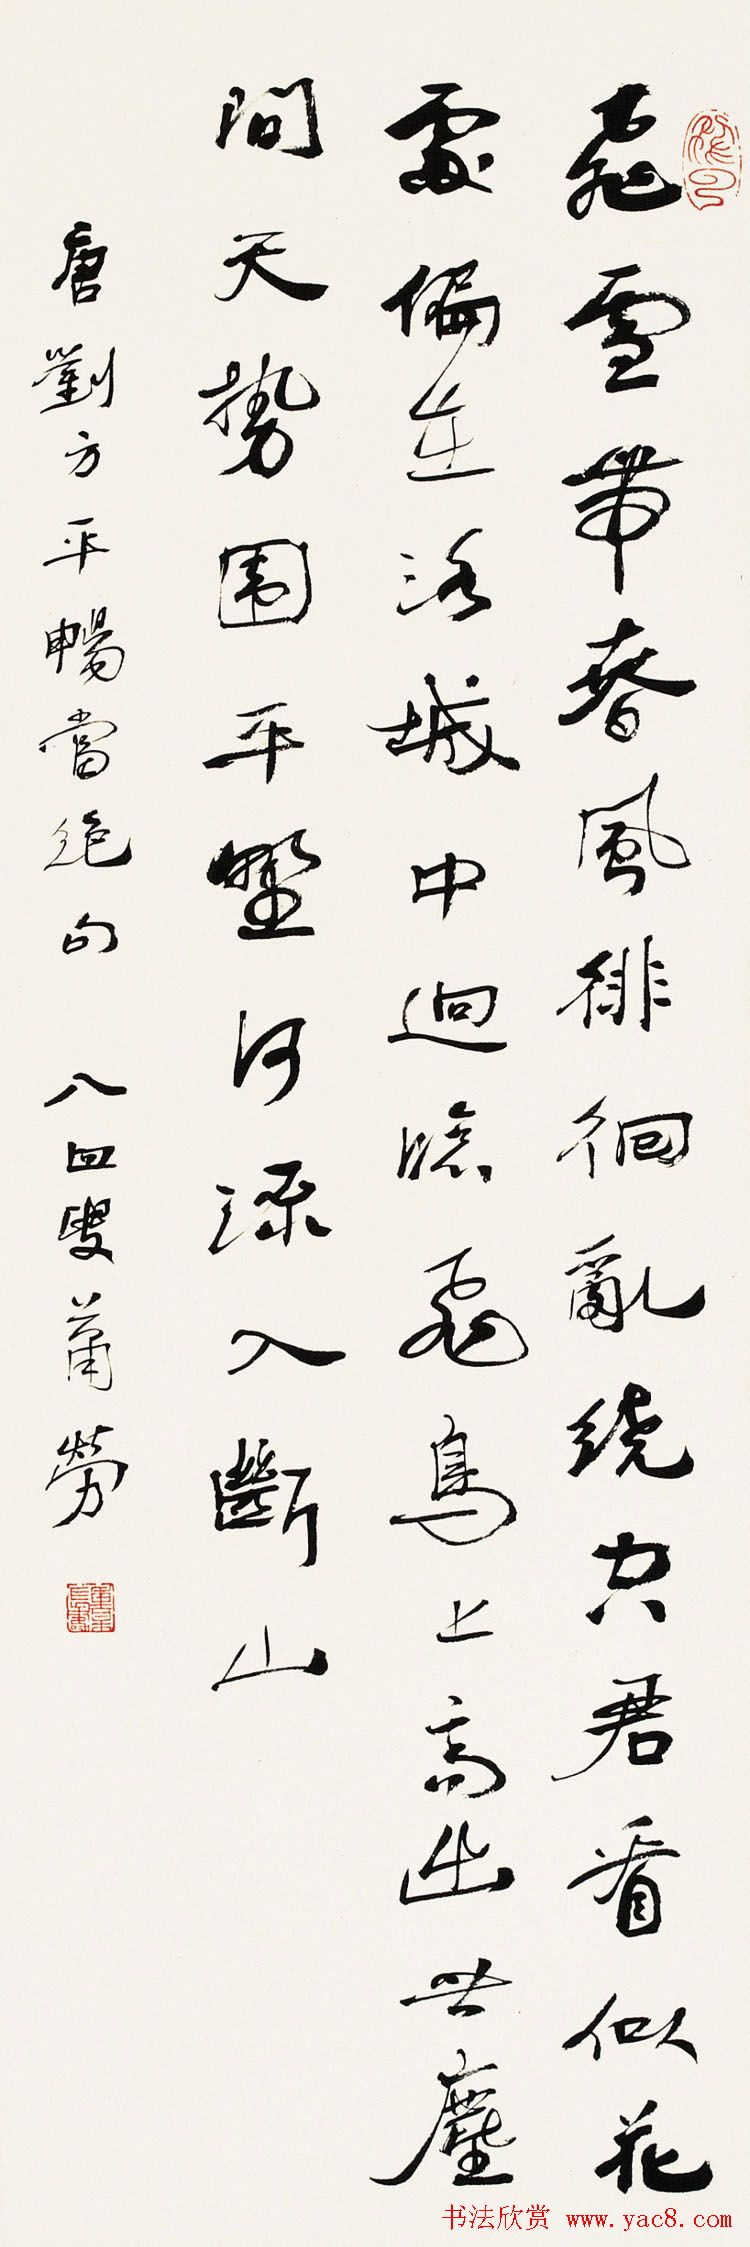 飛雪帶春風徘徊亂繞空君看似花
處偏在洛城中迥臨飛鳥上高出世塵
間天勢围平野河流入斷山
唐劉方平暢當絕句 八四叟蕭勞
书法欣赏 www.yac8.com